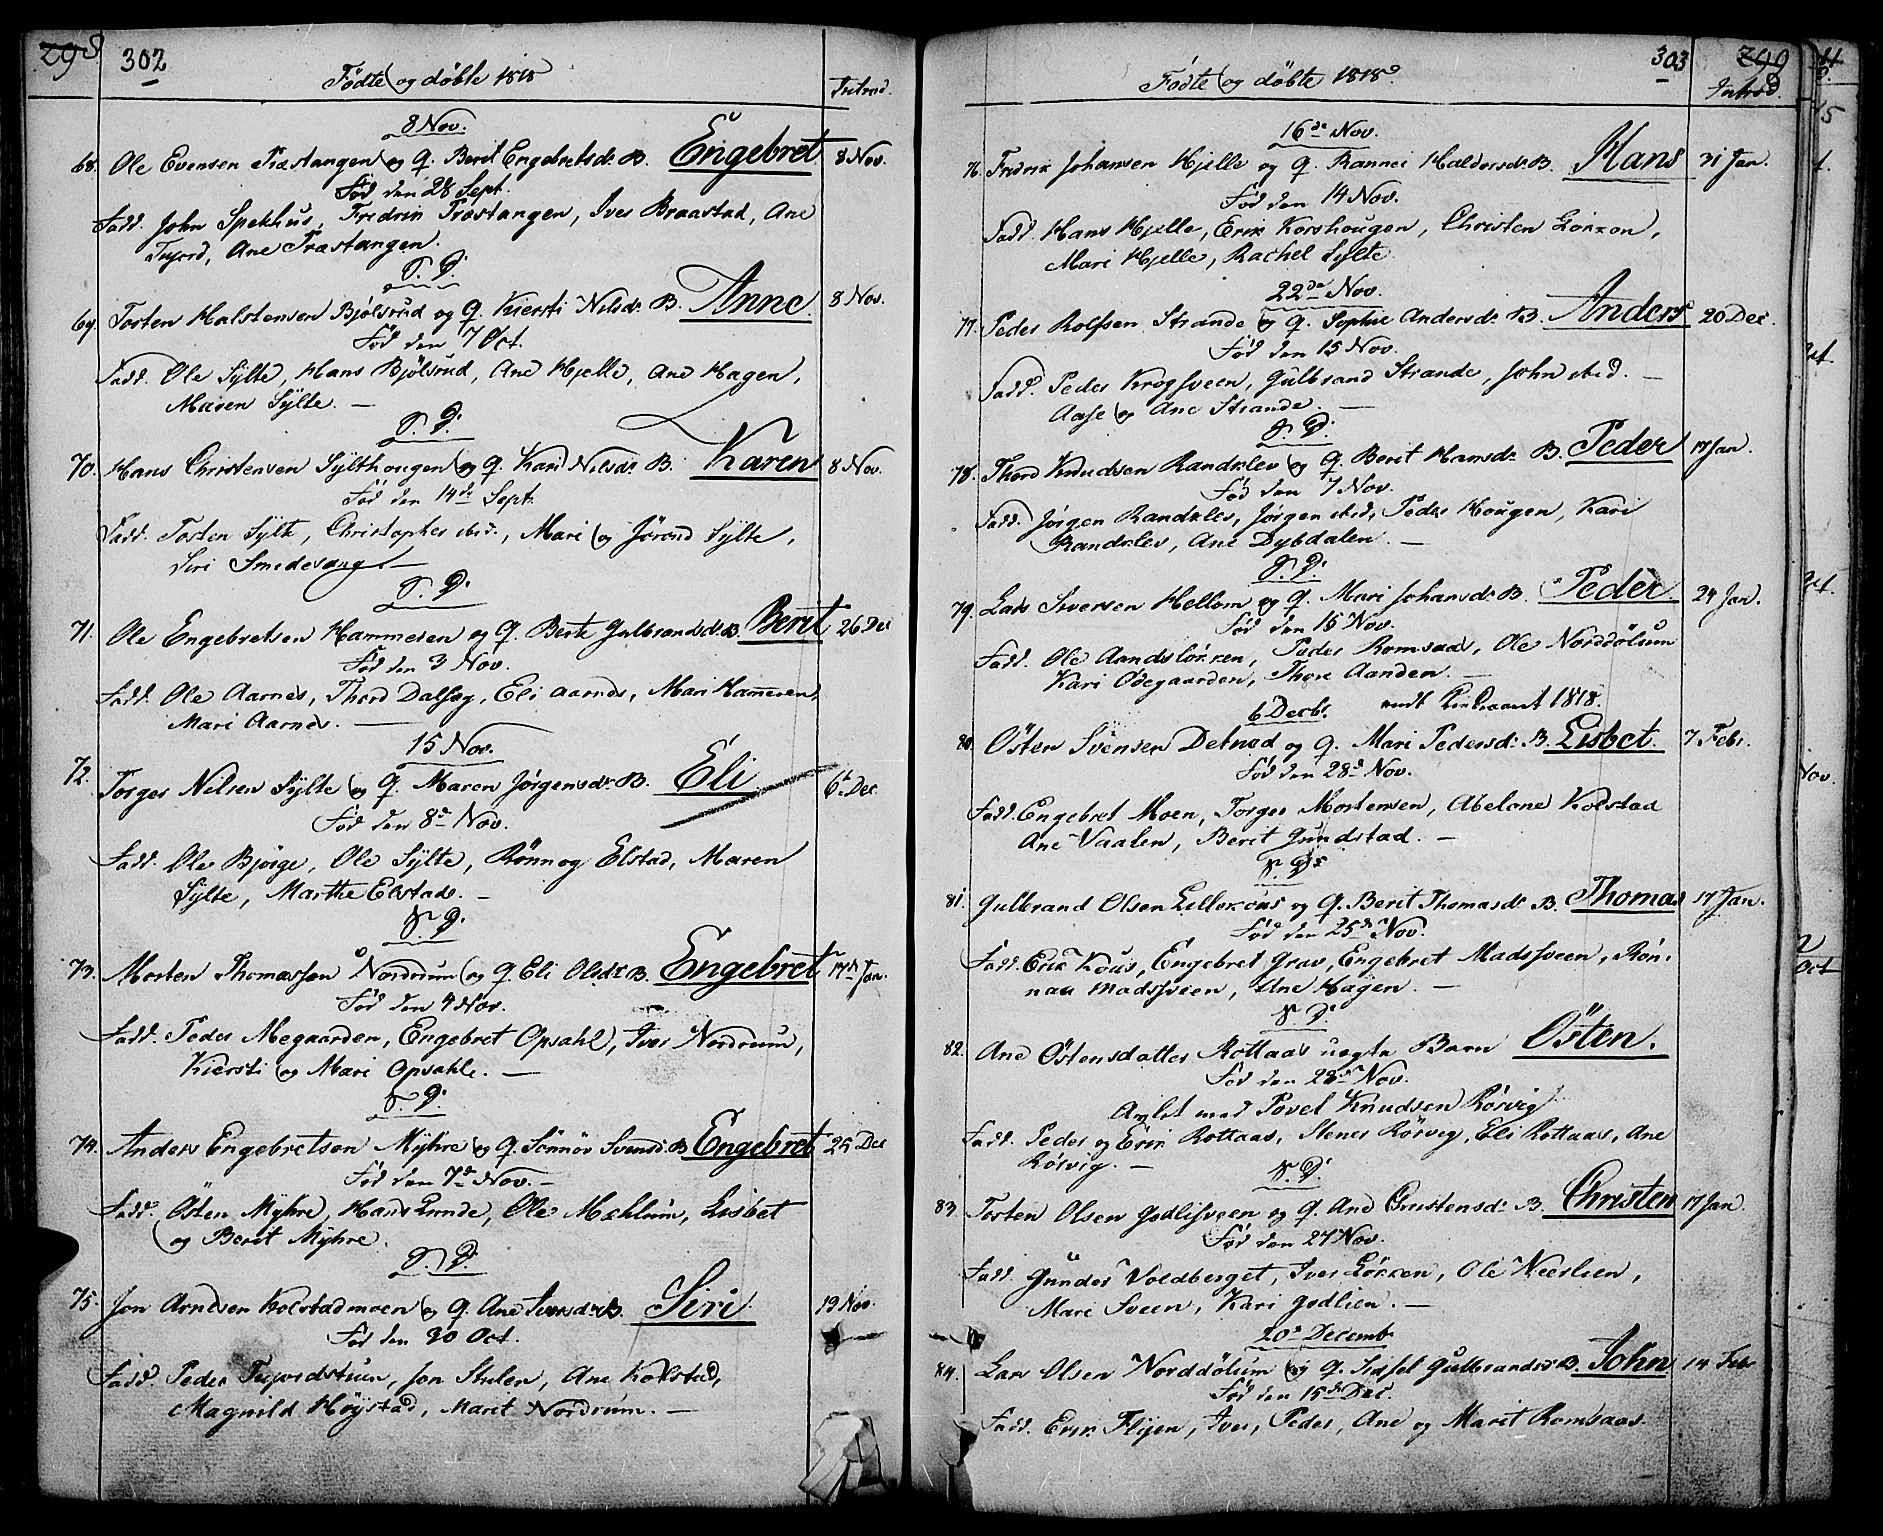 298 302
Födte og döbte 1818
Introd.
8 Nov.
68. Ole Evensen Præstangen og Q. Berit Engebretsdr. B. Engebret 8 Nov.
Föd den 28 Sept.
Fadd. John Spekhus, Fredrik Præstangen, Iver Braastad, Ane
Ane Præstangen.
S. D.
69. Tosten Halstensen Bjölsrud og Q. Kiersti Nilsdr. B. Anne 8 Nov.
Föd den 7 Oct.
Fadd. Ole Sylte, Hans Bjölsrud, Ane Hjelle, Ane Hagen,
Maren Sylte.
S. D.
70. Hans Christensen Sylthougen og Q. Kari Nilsdr. B. Karen 8 Nov.
Föd den 14de Sept.
Fadd. Tosten Sylte, Christopher ibid., Mari og Jörond Sylte,
Siri Smedesang
S. D.
71. Ole Engebretsen Hammeren og Q. Berte Gulbrandsdr. B. Berit 26 Dec
Föd den 3 Nov.
Fadd. Ole Aarnes, Thord Dalseg, Eli Aarnes, Mari Hameren,
Mari Aarnes.
15 Nov.
72. Torger Nelsen Sylte og Q. Maren Jörgensdr. B. Eli 6te Dec
Föd den 8de Nov.
Fadd. Ole Bjørge, Ole Sylte, Rönnog Elstad, Maren
Sylte, Marthe Elstad.
S. D.
73. Morten Thomassen Nordrum og Q. Eli Olsdr. B. Engebret 17de Jan.
Föd den 4 Nov.
Fadd. Peder Megaarden, Engebret Opsahl, Iver Nordrum,
Kiersti og Mari Opsahl.
S. D.
74. Anders Engebretsen Myhre og Q. Sönnöv Svensd. B. Engebret 25 Dec
Föd den 7de Nov.
Fadd. Östen Myhre, Hans Lunde, Ole Mæhlum, Lisbet
og Berit Myhre.
S. D.
75. Jon Arnesen Kolstadmoen og Q. Ane Iversdr. B. Siri 19 Nov.
Föd den 30 Oct.
Fadd. Peder Jon Stulen, Ane Kolstad,
Magnild Höystad, Marit Nordrum.
303 299
Födte og döbte 1818
Introd.
16de Nov.
76. Fredrik Johansen Hjelle og Q. Rannei Haldorsdr. B. Hans 31 Jan.
Föd den 14 Nov.
Fadd. Hans Hjelle, Erik Korshougen, Christen Lökken,
Mari Hjelle, Rachel Sylte
22de Nov.
77. Peder Rolfsen Strande og Q. Sophie Andersdr. B. Anders 20 Dec.
Föd den 15 Nov.
Fadd. Peder Krogsveen, Gulbrand Strande, John ibid.
Aase og Ane Strande.
S. D.
78. Thord Knudsen Randklev og Q. Berit Hansdr. B. Peder 17 Jan.
Föd den 7 Nov.
Fadd. Jörgen Randklev, Jörgen ibid, Peder Hougen, Kari
Randklev, Ane Dybdalen.
S. D.
79. Lars Siversen Hellom og Q. Mari Johansdr. B. Peder 24 Jan.
Föd den 15 Nov.
Fadd. Ole Aandslökken, Peder Romsaas, Ole Norddölum
Kari Ödegaarden, Thore Aanden.
6 Decbr. Kirkeaaret 1818.
80. Östen Svensen Detned og Q. Mari Pedersdr. B. Lisbet. 7 Febr.
Föd den 28de Nov.
Fadd. Engebret Moen, Torger Mortensen, Abelone Kolstad
Ane Vaalen, Berit Gundstad.
S. D.
81. Gulbrand Olsen Lillekous og Q. Berit Thomasdr. B. Thomas 17 Jan.
Föd den 25de Nov.
Fadd. Erik Kous, Engebret Grav, Engebret Madssveen, Rön-
nau Madssveen, Ane Hagen.
S. D.
82. Ane Östensdatter Rottaas uegte Barn Östen.
Föd den 22de Nov.
Avlet med Povel Knudsen Rörvig
Fadd. Peder og Erik Rottaas, Stener Rörvig, Eli Rottaas, Ane
Rörvig.
S. D.
83. Tosten Olsen Godlisveen og Q. Ane Christensdr. B. Christen 17 Jan.
Föd den 27 Nov.
Fadd. Gunder Voldberget, Iver Lökken, Ole Neerlien,
Mari Sveen, Kari Godlien.
20de Decemb
84. Lars Olsen Norddölum og Q. Sidsel Gulbrandsdr. B. John 14 Feb
Föd den 15de Dec.
Fadd. Erik Flyen, Iver, Peder, Ane og Marit Romsaas.